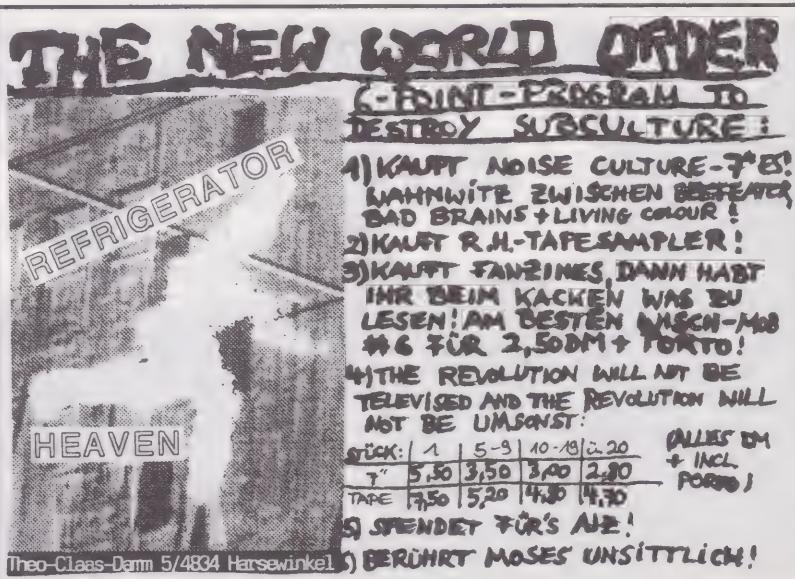 THE NEW WORLD ORDER
6-POINT-PROGRAM TO
DESTROY SUBSCULTURE:
REFRIGERATOR
HEAVEN
Theo-Claas-Damm 5/4834 Harsewinkel
1) KAUFT NOISE CULTURE-7" ES!
WAHNWITZ ZWISCHEN BEEFEATER,
BAD BRAINS + LIVING COLOUR!
2) KAUFT R.H.-TAPESAMPLER!
3) KAUFT FANZINES, DANN HABT
IHR BEIM KACKEN WAS ZU
LESEN! AM BESTEN WISCH-MOB
#6 FÜR 2,50DM + PORTO!
4) THE REVOLUTION WILL NOT BE
TELEVISED AND THE REVOLUTION WILL
NOT BE UMSONST:
STÜCK: 1 5-9 10-19 ü.20
7" 5,50 3,50 3,00 2,80
TAPE 7,50 5,20 4,80 4,70
(ALLES DM
+ INCL.
PORTO)
5) SPENDET FÜR'S AJZ!
6) BERÜHRT MOSES UNSITTLICH!